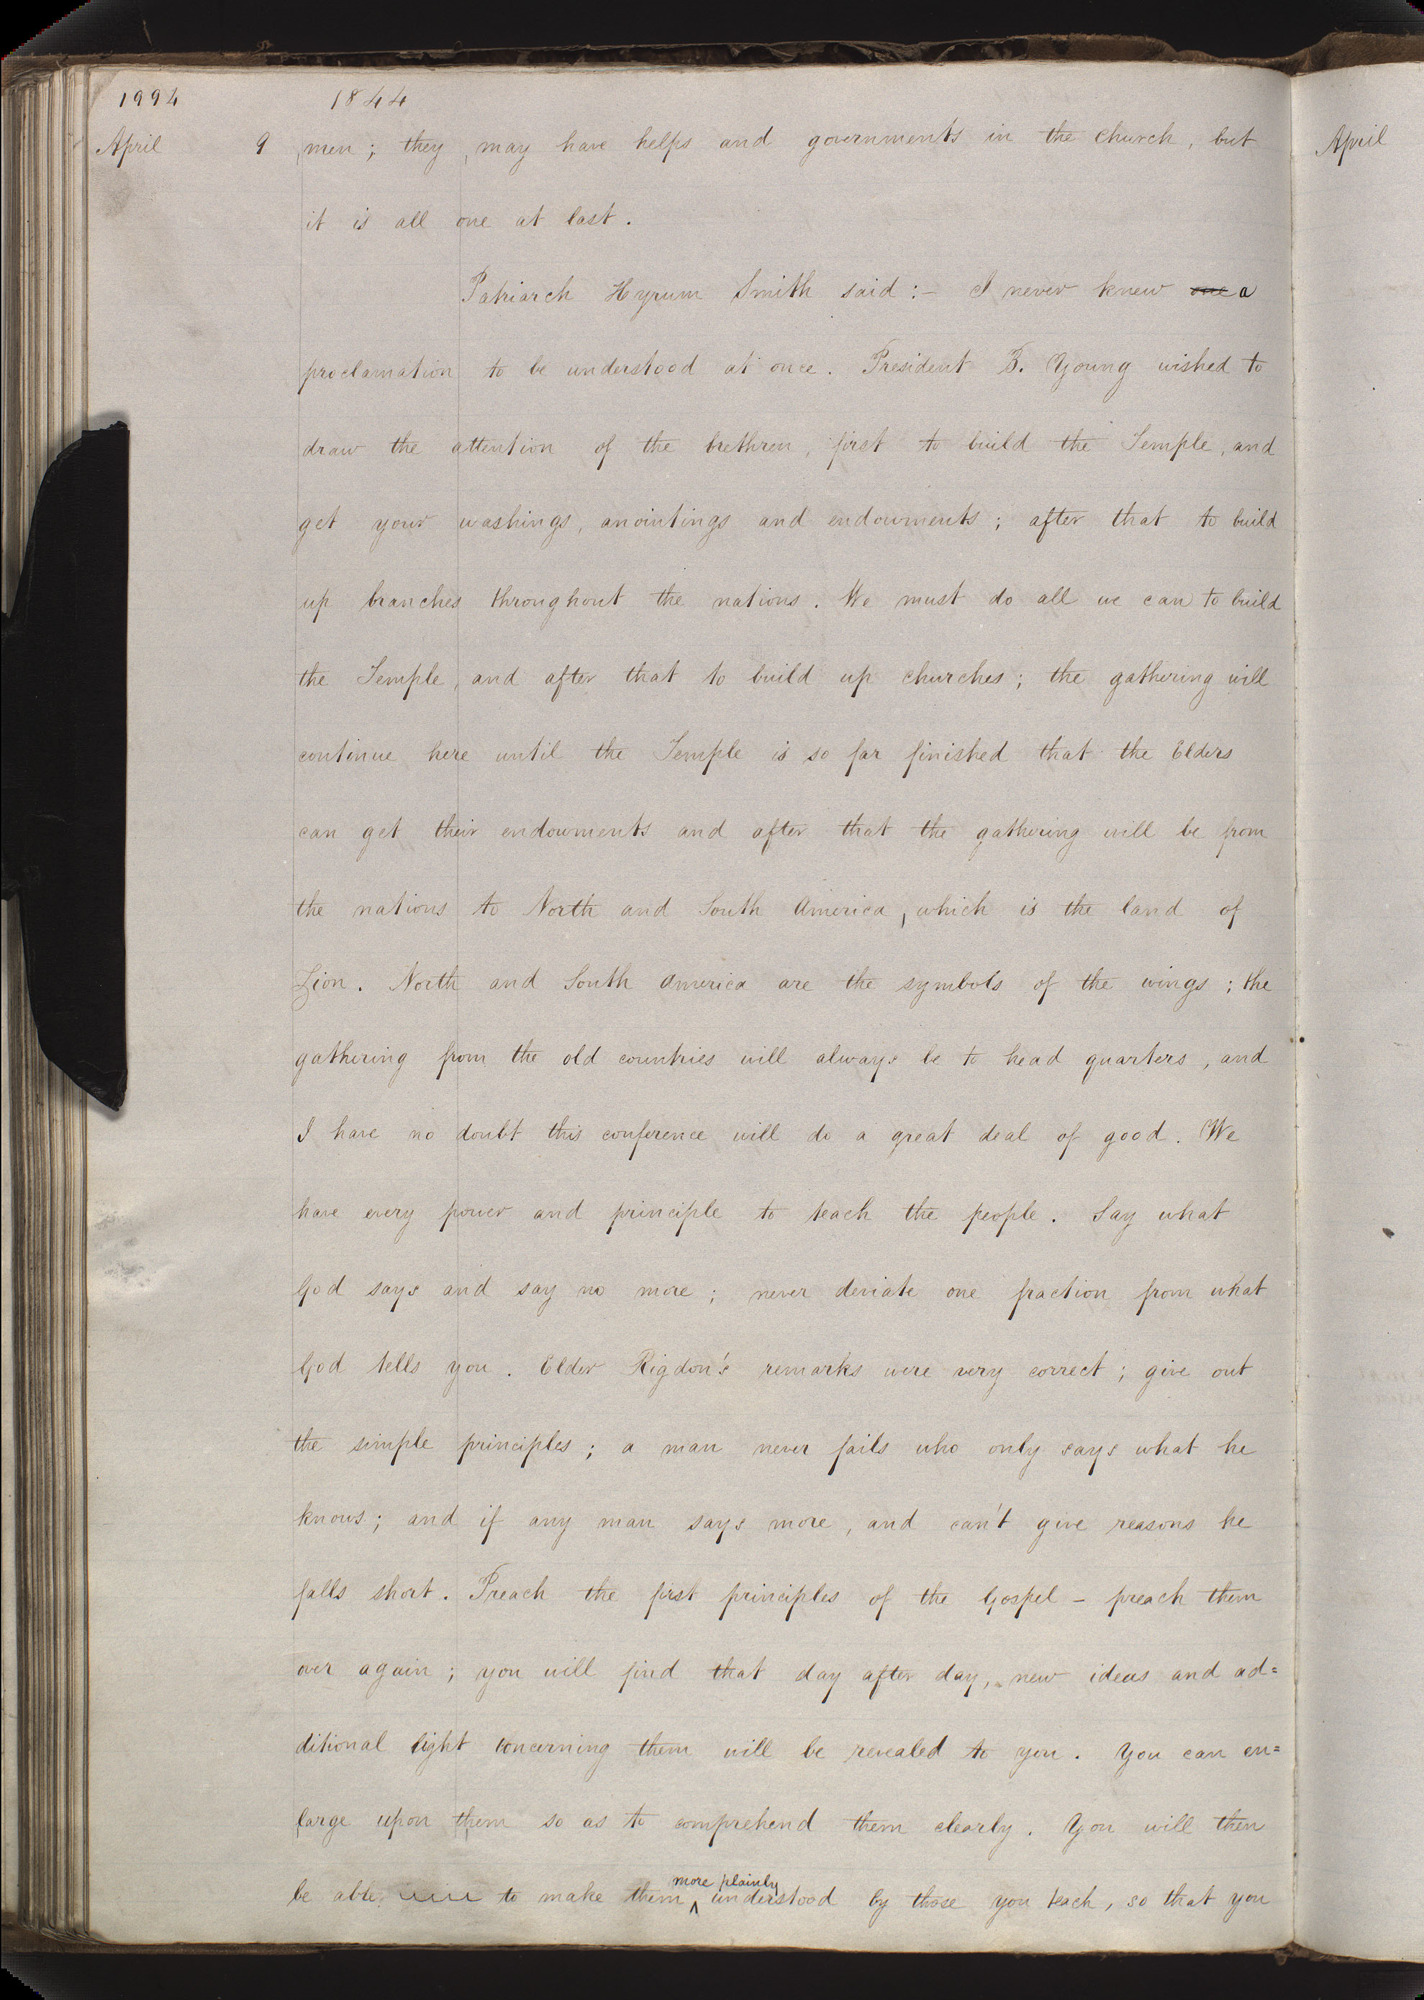 1994 1844
April 9 men; they may have helps and governments in the church, but
it is all one at last.
Patriarch Hyrum Smith said:- I never knew one a
proclamation to be understood at once. President B. Young wished to
draw the attention of the brethren, first to build the Temple, and
get your washings, anointings and endowments; after that to build
up branches throughout the nations. We must do all we can to build
the Temple, and after that to build up churches; the gathering will
continue here until the Temple is so far finished that the Elders
can get their endowments and after that the gathering will be from
the nations to North and South America, which is the land of
Zion. North and South America are the symbols of the wings; the
gathering from the old countries will always be to head quarters, and
I have no doubt this conference will do a great deal of good. We
have every power and principle to teach the people. Say what
God says and say no more; never deviate one fraction from what
God tells you. Elder Rigdon's remarks were very correct; give out
the simple principles; a man never fails who only says what he
knows; and if any man says more, and can't give reasons he
falls short. Preach the first principles of the Gospel - preach them
over again; you will find that day after day, new ideas and ad=
ditional light concerning them will be revealed to you. You can en=
large upon them so as to comprehend them clearly. You will then
be able to make them ^ more plainly understood by those you teach, so that you
April